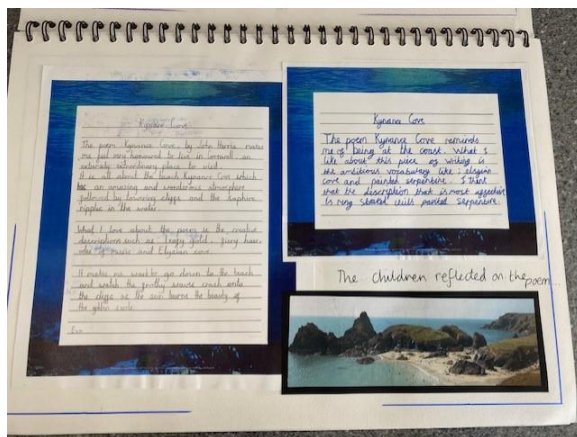 Kynance Cove
The poem Kynance Cove by John Harris, makes
me feel very honoured to live in Cornwall an
extremely extraordinary place to visit.
It is all about the beach Kynance Cove which
has an amazing and wonderous atmosphere
followed by towering cliffs and the saphire
ripples in the water.
What I love about the poem is the creative
descriptions such as: Leafy gold, fiery hues
of music and Elysian cove.
It makes me want to go down to the beach
and watch the frothy waves crash onto
the cliffs as the sun burns the beauty of
the
Kynance Cove
The poem Kynance Cove reminds
me of being at the coast. What I
like about this piece of writing is
the ambitious vocabulary like; elysian
cove and painted serpentine. I think
that the description that is most effective
is painted serpentine.
The children reflected on the poem...